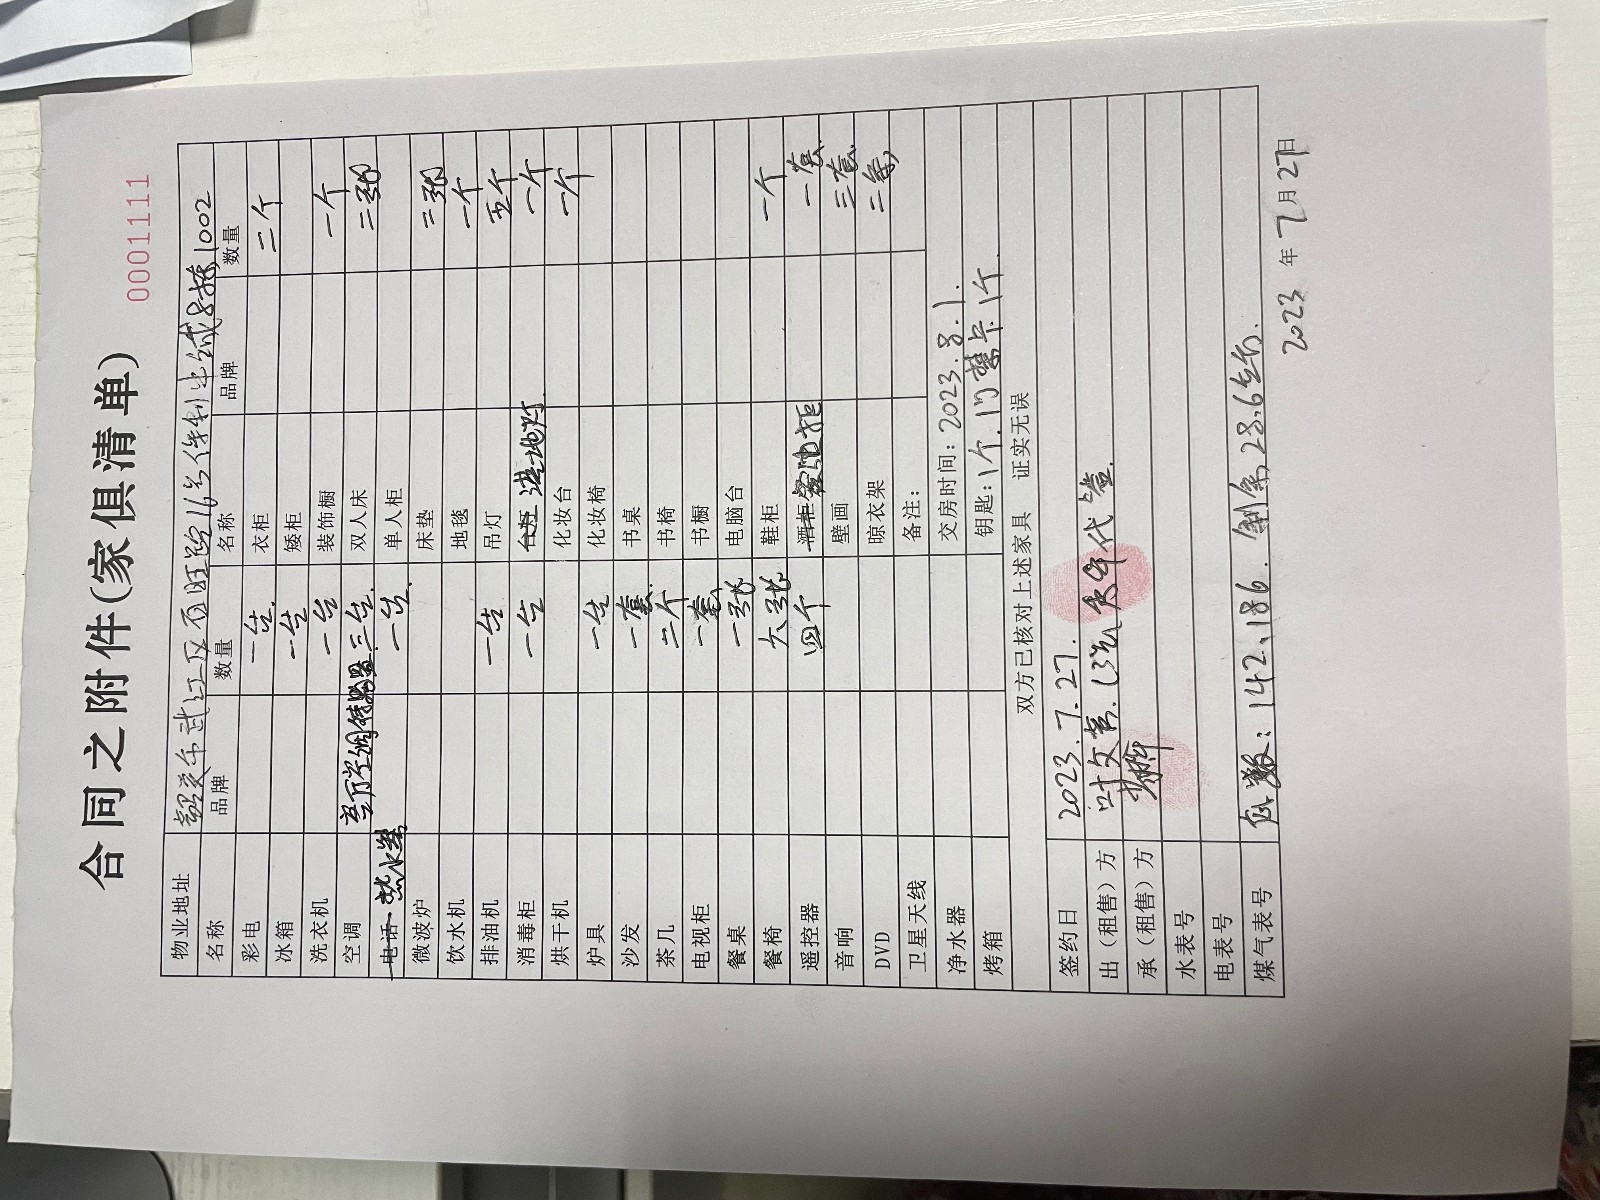 0001111
合同之附件(家俱清单)
物业地址 韶关市武江区百旺路16号 8栋1002
名称 品牌 数量 名称 品牌 数量
彩电 一台 衣柜 二个
冰箱 一台 矮柜
洗衣机 一台 装饰橱 一个
空调 三台 双人床 二张
电话 热水器 一台 单人柜
微波炉 床垫 二张
饮水机 地毯 一个
排油机 一台 吊灯 五个
消毒柜 一台 台灯 落地灯 一个
烘干机 化妆台 一个
炉具 一台 化妆椅
沙发 一套 书桌
茶几 二个 书椅
电视柜 一套 书橱
餐桌 一张 电脑台
餐椅 六张 鞋柜 一个
遥控器 四个 酒柜 一套
音响 壁画 三套
DVD 晾衣架 二条
卫星天线 备注:
净水器 交房时间:2023.8.1.
烤箱 钥匙:1个.门禁卡1个.
双方已核对上述家具 证实无误
签约日 2023.7.27.
出(租售)方 叶文 代签.
承(租售)方
水表号
电表号
煤气表号 底数:142.186. 剩余28.6
2023 年 7 月 27 日